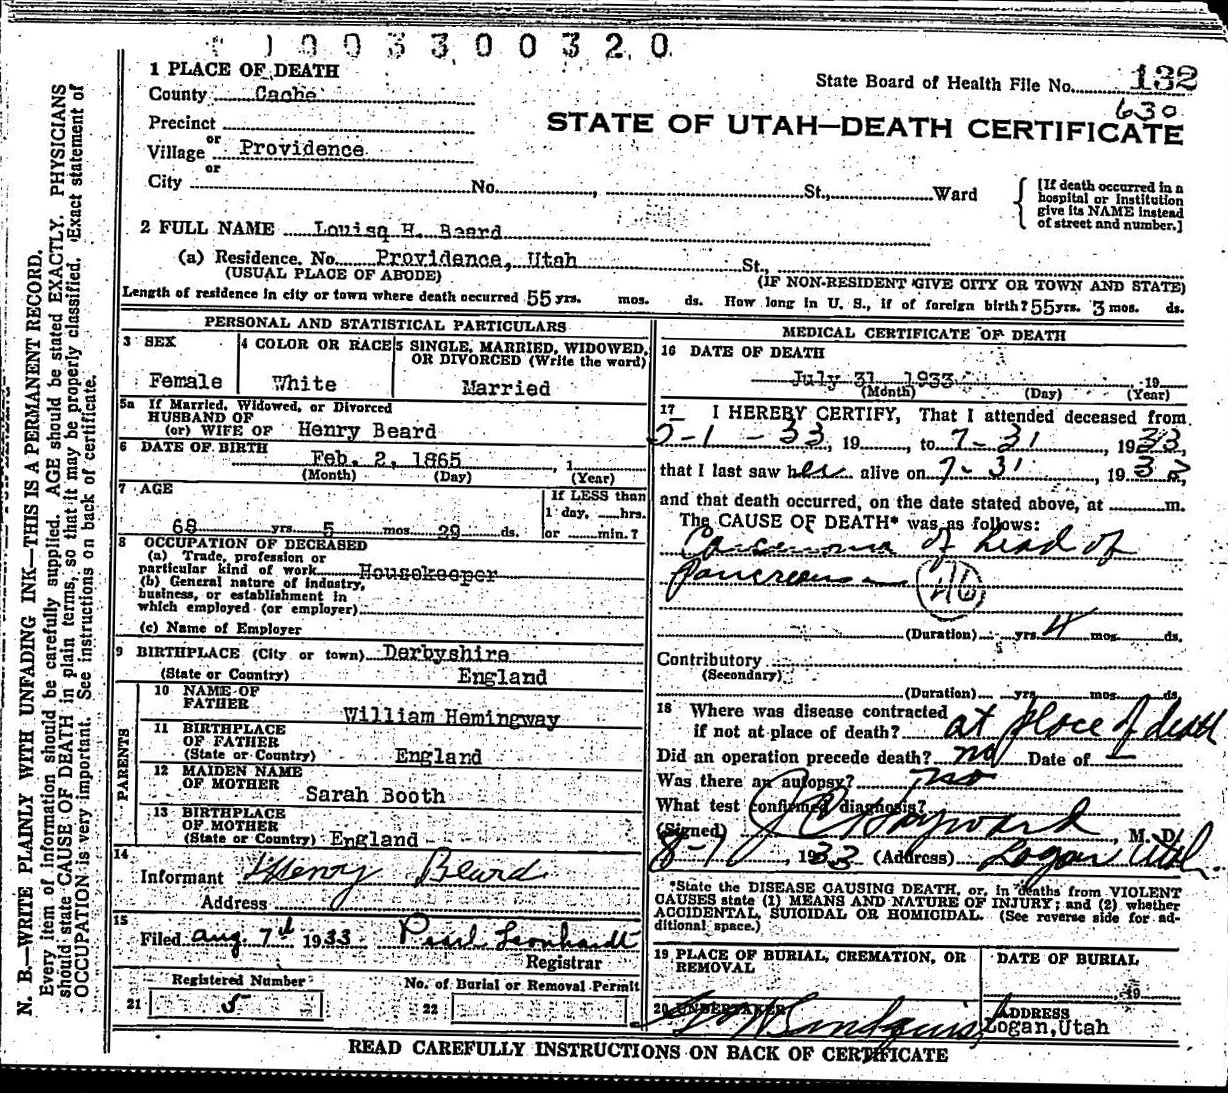 1003300320
1 PLACE OF DEATH
State Board of Health File No. 132
County Cache
630
STATE OF UTAH—DEATH CERTIFICATE
Precinct
or
Village Providence
or
City No. , St., Ward
[If death occurred in a
hospital or institution
give its NAME instead
of street and number.]
2 FULL NAME Louisa H. Beard
(a) Residence. No. Providence, Utah St.,
(USUAL PLACE OF ABODE) (IF NON-RESIDENT GIVE CITY OR TOWN AND STATE)
Length of residence in city or town where death occurred 55 yrs. mos. ds. How long in U. S., if of foreign birth? 55 yrs. 3 mos. ds.
PERSONAL AND STATISTICAL PARTICULARS
3 SEX
Female
4 COLOR OR RACE
White
5 SINGLE, MARRIED, WIDOWED,
OR DIVORCED (Write the word)
Married
5a If Married, Widowed, or Divorced
HUSBAND OF
(or) WIFE OF Henry Beard
6 DATE OF BIRTH
Feb. 2, 1865 , 1
(Month) (Day) (Year)
7 AGE
68 yrs. 5 mos. 29 ds.
If LESS than
1 day, hrs.
or min.?
8 OCCUPATION OF DECEASED
(a) Trade, profession or
particular kind of work Housekeeper
(b) General nature of industry,
business, or establishment in
which employed (or employer)
(c) Name of Employer
9 BIRTHPLACE (City or town) Derbyshire
(State or Country) England
PARENTS
10 NAME OF
FATHER
William Hemingway
11 BIRTHPLACE
OF FATHER
(State or Country) England
12 MAIDEN NAME
OF MOTHER
Sarah Booth
13 BIRTHPLACE
OF MOTHER
(State or Country) England
14
Informant Henry Beard
Address
15
Filed Aug. 7th 1933 Pearl Leonhardt
Registrar
Registered Number
21 5
No. of Burial or Removal Permit
22
MEDICAL CERTIFICATE OF DEATH
16 DATE OF DEATH
July 31 1933 19
(Month) (Day) (Year)
17 I HEREBY CERTIFY, That I attended deceased from
5-1-33, 19 , to 7-31 , 1933,
that I last saw her alive on 7-31 , 193 ,
and that death occurred, on the date stated above, at m.
The CAUSE OF DEATH* was as follows:
Carcinoma of head of
Pancreas
46
(Duration) yrs. 4 mos. ds.
Contributory
(Secondary)
(Duration) yrs. mos. ds.
18 Where was disease contracted
if not at place of death? at place of death
Did an operation precede death? no Date of —
Was there an autopsy? no
What test confirmed diagnosis?
(Signed) J C Hayward , M. D.
8-7 , 1933 (Address) Logan Utah.
*State the DISEASE CAUSING DEATH, or, in deaths from VIOLENT
CAUSES state (1) MEANS AND NATURE OF INJURY; and (2) whether
ACCIDENTAL, SUICIDAL OR HOMICIDAL. (See reverse side for ad-
ditional space.)
19 PLACE OF BURIAL, CREMATION, OR
REMOVAL
DATE OF BURIAL
, 19
20 UNDERTAKER
Lindquist
ADDRESS
Logan, Utah
READ CAREFULLY INSTRUCTIONS ON BACK OF CERTIFICATE
N. B.—WRITE PLAINLY WITH UNFADING INK—THIS IS A PERMANENT RECORD.
Every item of information should be carefully supplied. AGE should be stated EXACTLY. PHYSICIANS
should state CAUSE OF DEATH in plain terms, so that it may be properly classified. Exact statement of
OCCUPATION is very important. See instructions on back of certificate.